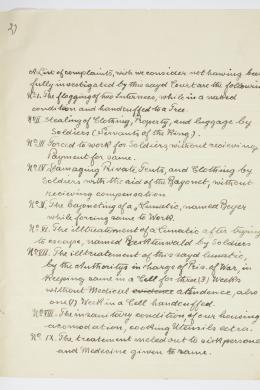 A List of complaints, wich we consider not having been
fully investigated by this sayd Court are the following
No. I. The flogging of two Internees, while in a naked
condition and handcuffed to a Tree.
No. II Stealing of Clothing, Property, and luggage by
Soldiers (Servants of the King).
No. III Forced to work for Soldiers without recieving
Payment for same.
No. IV Damaging Private Tents, and Clothing by
Soldiers with the aid of the Bayonet, without
recieving compensation
No. V. The bayoneting of a Lunatic, named Beyer
while forcing same to Work.
No. VI. The illtreatment of a lunatic after trying
to escape, named by Soldiers
No. VII. The illtreatement of this sayd lunatic,
by the Authoritys in charge of Pris. of War, in
keeping same in a Cell for three (3) Weeks
without Medical evidence attendence, also
one (1) Week in a Cell handcuffed.
No. VIII. The insanitary condition of our housing
acomodation, cooking Utensils ectra.
No. IX. The treatment meled out to sik persones
and Medicine given to same.